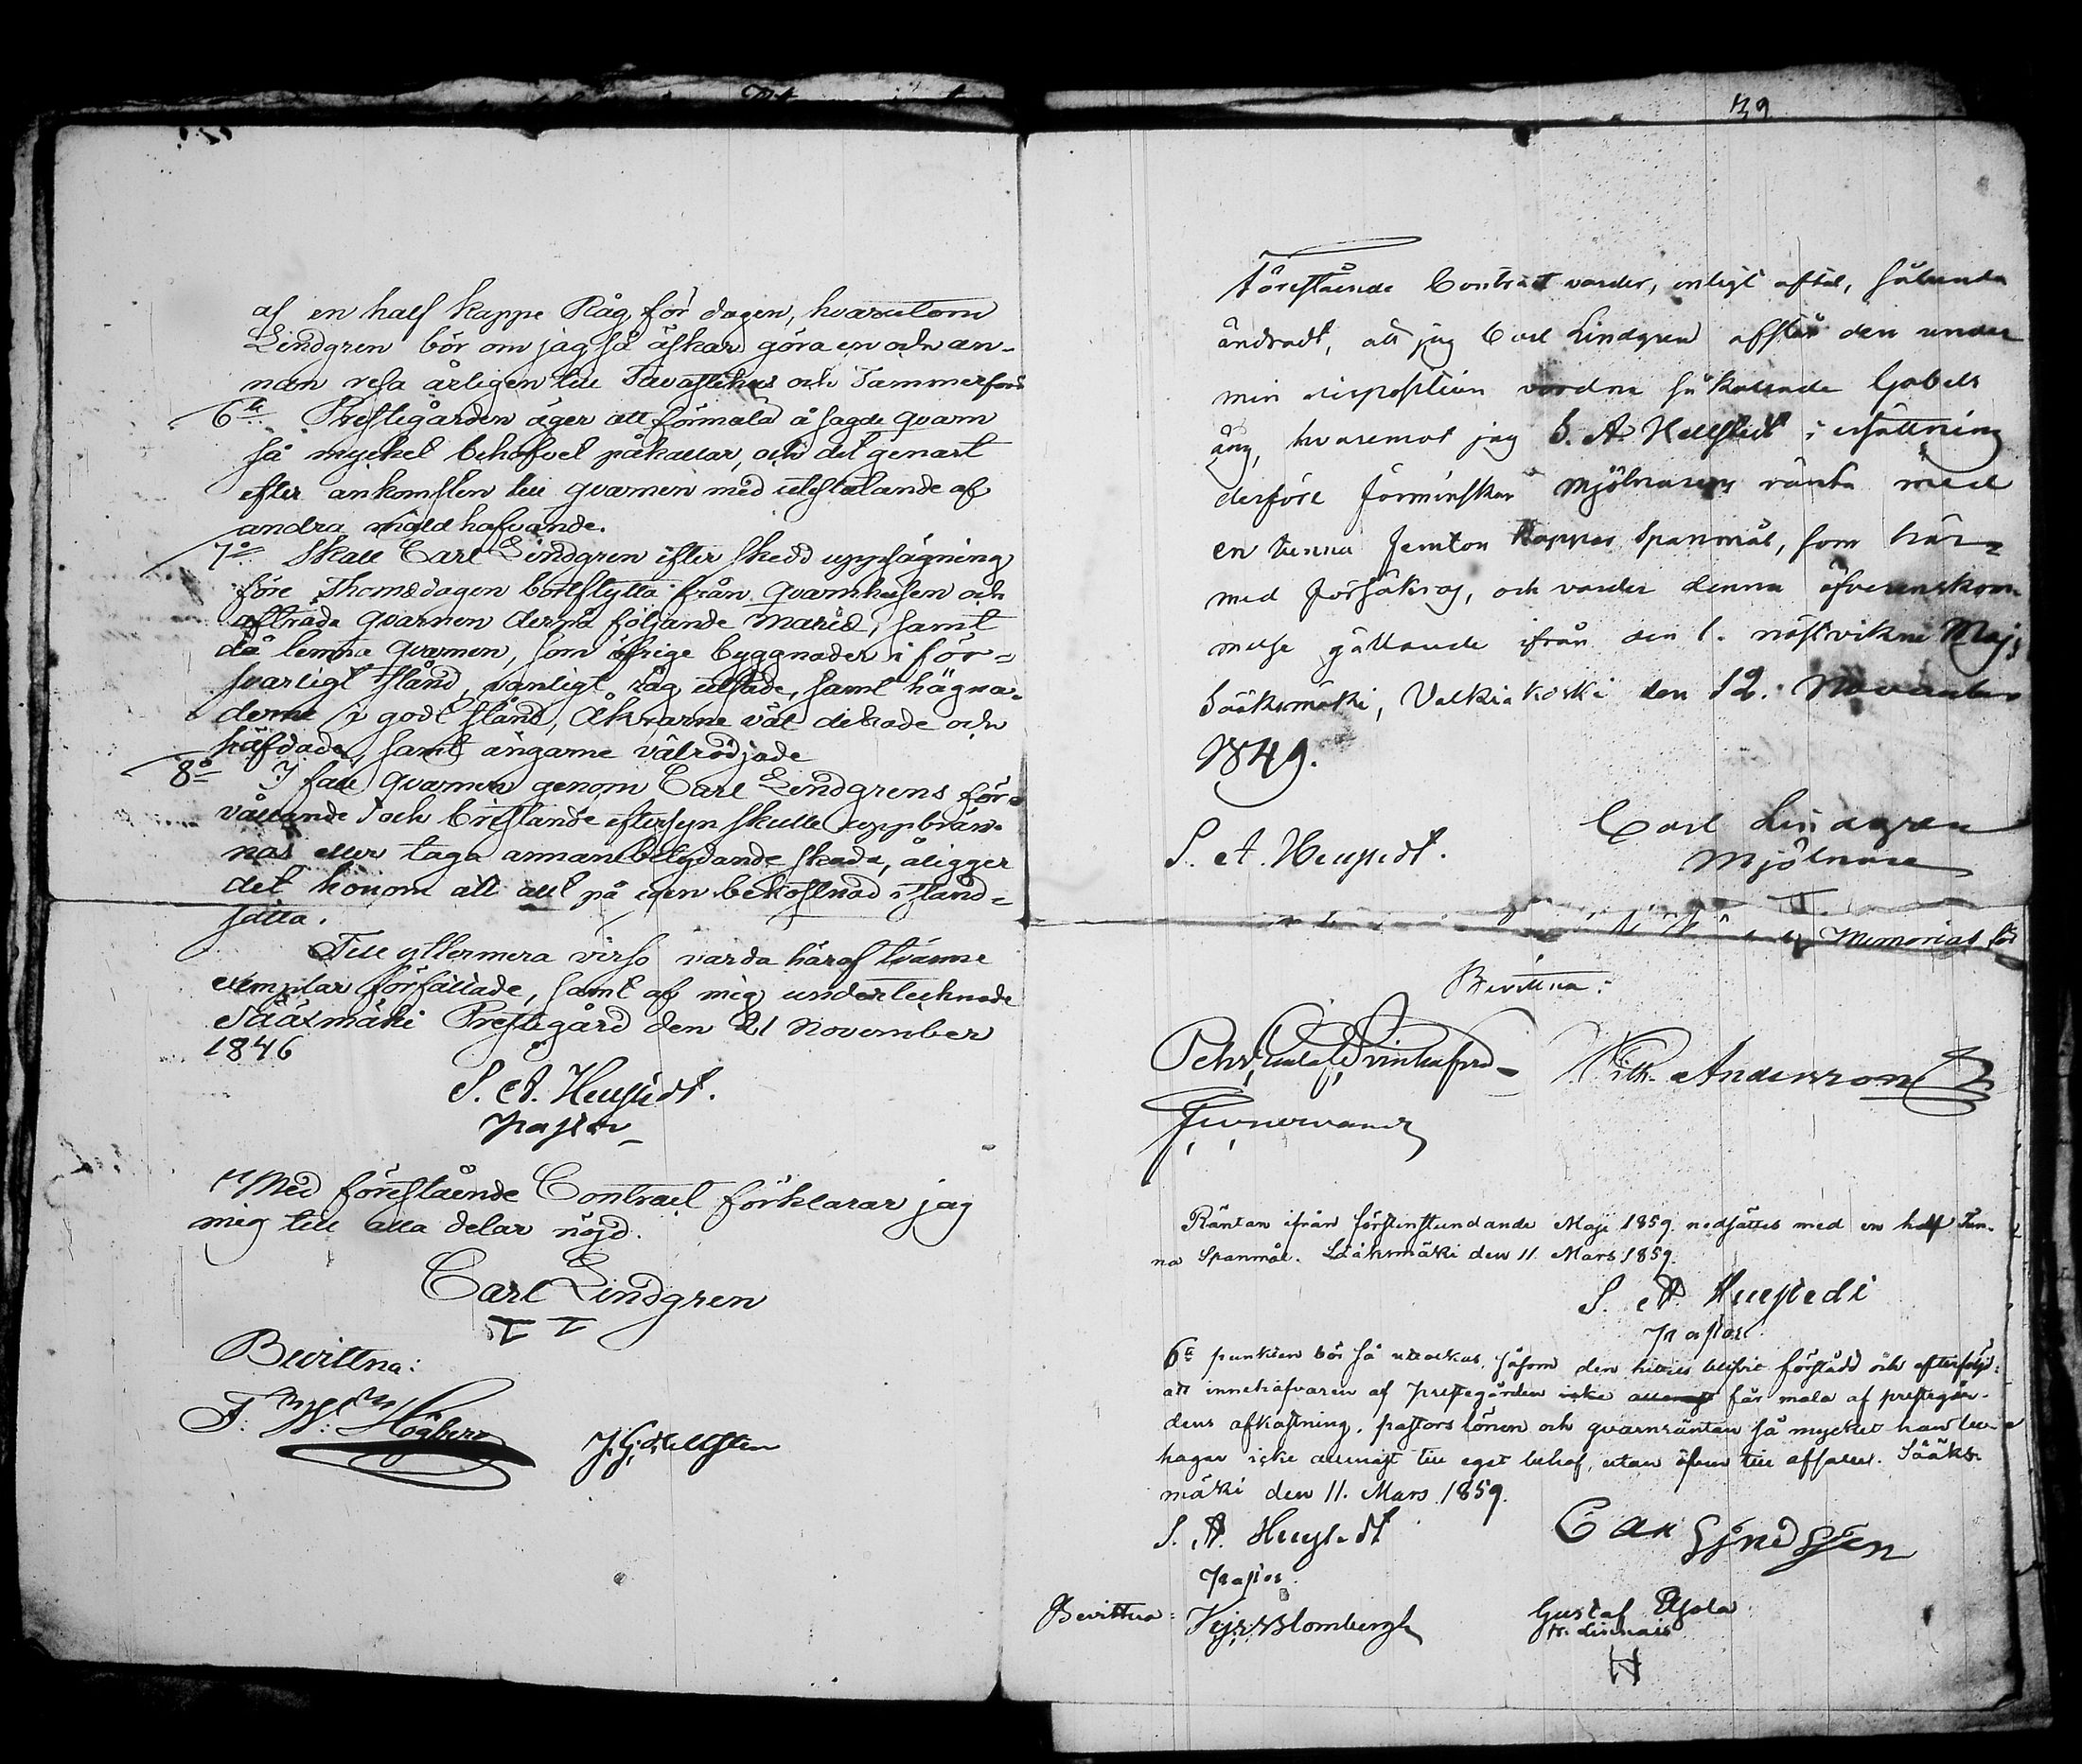 af en half kappe Råg för dagen, hvarutom
Lindgren bör om jag så äskar göra en och an-
nan resa årligen till Tavastehus och Tammerfors
6te Prestegården äger att förmala å sagde qvarn
så mycket behofvet påkallar, och det genast
efter ankomsten till qvarnen med uteslutande af
andra mäld hafvande.
7o Skall Carl Lindgren efter skedd uppsägning
före Thomædagen bortflytta från qvarnhusen och
afträda qvarnen derpå följande Martii, samt
då lemna qvarnen, som öfrige byggnader i för-
svarligt stånd, vanligt råg utsäde, samt hägna-
derne i godt stånd, åkrarne väl dikade och
häfdade, samt ängarne välrödjade
8o I fall qvarnen genom Carl Lindgrens för-
vållande och bristande eftersyn skulle uppbrän-
nas eller taga annan betydande skada, åligger
det honom att allt på egen bekostnad istånd-
sätta.
Till yttermera visso varda häraf tvänne
exemplar författade, samt af mig undertecknade
Sääxmäki Prestegård den 21 November
1846
S. A. Hellstedt.
Pastor
Med förestående Contract förklarar jag
mig till alla delar nöjd.
Carl Lindgren
Bevittna:
F. W: Högberg
J. G. Hellsten
139
Förestående Contract varder, enligt aftal, sålunda
ändradt, att jag Carl Lindgren afstår den under
min disposition vordne så kallade
äng, hvaremot jag S. A. Hellstedt i ersättning
derföre förminskar Mjölnarens ränta med
en tunna femton Kappar Spanmål, som här-
med försäkras, och varder denna öfverenskom-
melse gällande ifrån den 1. nästvikne Maj,
Sääksmäki, Valkiakoski den 12. November
1849.
S. A. Hellstedt.
Carl Lindgren
Mjölnare
Memorial för
Bevittna:
Pehr
Wilh. Andersson
Räntan ifrån förstinstundande Maji 1859 nedsättes med en half Tun-
na Spanmål. Sääksmäki den 11. Mars 1859.
S. A. Hellstedt
Pastor
6te punkten bör så utolkas, såsom den hittils blifvit förstådd och efterföljd:
att innehafvaren af prestegården icke allenast får mala af prestegår-
dens afkastning, pastorslönen och qvarnräntan så mycket han be-
hagar icke allenast till eget behof, utan äfven till afsalu. Sääks-
mäki den 11. Mars 1859.
S. A. Hellstedt
Pastor.
Carl
Bevittna:
Blombergh
Gustaf
H